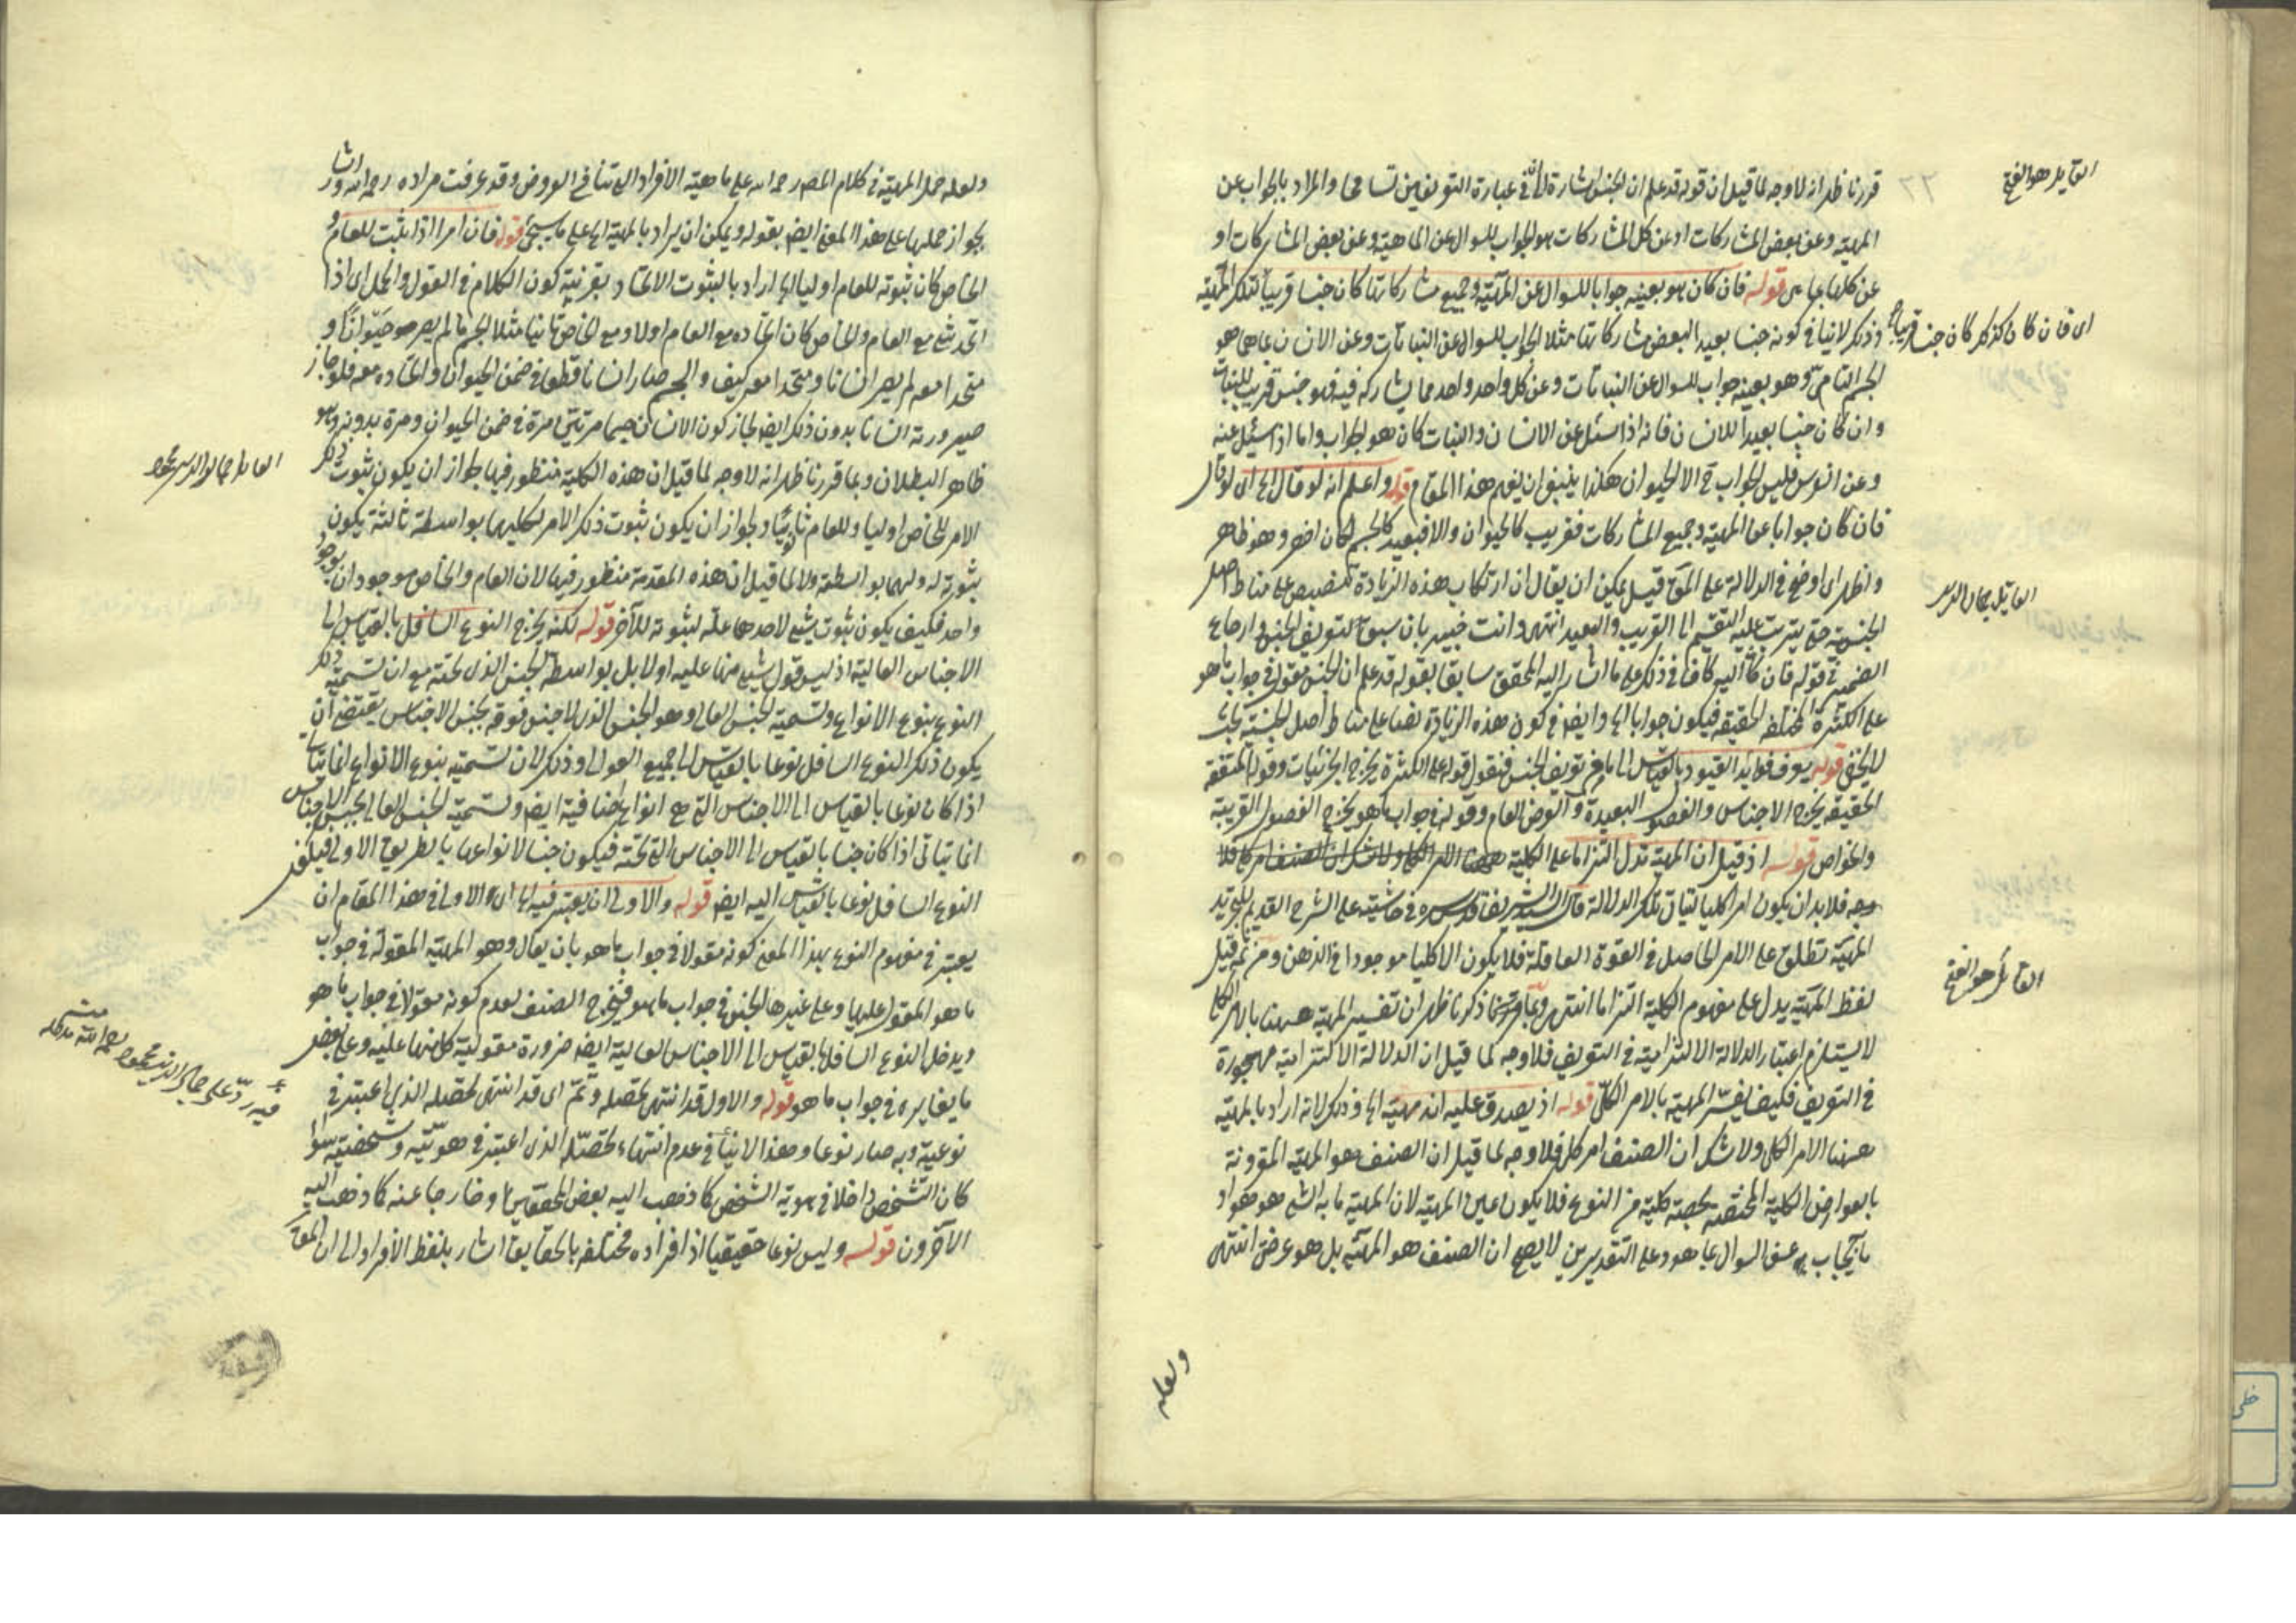 قررنا ظهر انه لا وجه لما قيل ان قوله قد علم ان الجنس اشارة الى ان في عبارة التعريفين تسامحا والمراد بالجواب عن
المهية وعن بعض المشاركات او عن كل المشاركات هو الجواب للسوال عن الماهية وعن بعض المشاركات او
عن كلها بما هى قوله فان كان هو بعينه جوابا للسوال عن المهية وجميع مشاركاتها كان جنسا قريبا لتلك المهية
وذلك لا ينافى كونه جنسا بعيدا لبعض مشاركاتها مثلا الجواب للسوال عن النباتات وعن الانسان بما هى هو
الجسم النامى وهو بعينه جواب للسوال عن النباتات وعن كل واحد واحد مما يشاركه فيه فهو جنس قريب للنبات
وان كان جنسا بعيدا للانسان فانه اذا سئل عن الانسان والنبات كان هو الجواب واما اذا سئل عنه
وعن الفرس فليس الجواب ح الا الحيوان هكذا ينبغى ان يفهم هذا المقام قوله واعلم انه لو قال الخ اى لو قال
فان كان جوابا عن المهية وجميع المشاركات فقريب كالحيوان والا فبعيد كالجسم لكان اخصر وهو ظاهر
واظهر اى اوضح فى الدلالة على المق قيل يمكن ان يقال ان ارتكاب هذه الزيادة تنصيص على مناط اصل
الجنسية حتى يترتب عليه التقسيم الى القريب والبعيد انتهى وانت خبير بان سبق تعريف الجنس وارجاع
الضمير فى قوله فان كان اليه كاف فى ذلك على ما اشار اليه المحقق سابقا بقوله قد علم ان الجنس مقول فى جواب ما هو
على الكثرة المختلفة الحقيقة فيكون جوابا الخ وايضا فى كون هذه الزيادة نصا على مناط اصل الجنسية بحث
لا يخفى قوله يعرف فوائد القيود بالقياس الى ما مر فى تعريف الجنس فنقول قوله على الكثرة يخرج الجزئيات وقوله المتفقة
الحقيقة يخرج الاجناس والفصول البعيدة والعرض العام وقوله فى جواب ما هو يخرج الفصول القريبة
والخواص قوله اذ قيل ان المهية تدل التزاما على الكلية
فلا بد ان يكون امرا كليا لتأتى تلك الدلالة قال السيد الشريف قدس سره فى حاشيته على الشرح القديم للتجريد
المهية تطلق على الامر الحاصل فى القوة العاقلة فلا يكون الا كليا موجودا فى الذهن ومن ثم قيل
لفظ المهية يدل على مفهوم الكلية التزاما انتهى وبما ذكرنا ظهر ان تفسير المهية ههنا بالامر الكلى
لا يستلزم اعتبار الدلالة الالتزامية فى التعريف فلا وجه لما قيل ان الدلالة الالتزامية مهجورة
فى التعريف فكيف يفسر المهية بالامر الكلى قوله اذ يصدق عليه انه مهية الخ وذلك لانه اراد بالمهية
ههنا الامر الكلى ولا شك ان الصنف امر كلى فلا وجه لما قيل ان الصنف هو المهية المقرونة
بالعوارض الكلية المختصة بحصة كلية من النوع فلا يكون عين المهية لان المهية ما به الشئ هو هو او
ما يجاب به عن السوال بما هو وعلى التقديرين لا يصح ان الصنف هو المهية بل هو عرض انتهى
ولعله
القايل هو الفتح
٢٣
اى فان كان كذلك كان جنسا قريبا
القايل جمال الدين
القايل هو الفتح
ولعله حمل المهية فى كلام المص رحمه الله على ماهية الافراد التى تنافى العروض وقد عرفت مراده رحمه الله واشار
بجواز حملها على هذا المعنى ايضا بقوله ويمكن ان يراد بالمهية الخ على ما سيجئ قوله فان امرا اذا ثبت للعام و
الخاص كان ثبوته للعام اوليا الخ اراد بالثبوت الاتحاد بقرينة كون الكلام فى القول والحمل اى اذا
اتحد شئ مع العام والخاص كان اتحاده مع العام اولا ومع الخاص ثانيا مثلا الجسم ما لم يصر حيوانا و
متحدا معه لم يصر انسانا ومتحدا معه كيف والجسم صار انسانا قطعا فى ضمن الحيوان واتحاده معه فلو جاز
صيرورته انسانا بدون ذلك ايضا لجاز كون الانسان جسما مرتين مرة فى ضمن الحيوان ومرة بدونه وهو
ظاهر البطلان وبما قررنا ظهر انه لا وجه لما قيل ان هذه الكلية منظور فيها لجواز ان يكون ثبوت ذلك
الامر للخاص اوليا وللعام ثانيا ولجواز ان يكون ثبوت ذلك الامر لكليهما بواسطة ثالثة يكون
ثبوته له ولهما بواسطته ولا لما قيل ان هذه المقدمة منظور فيها لان العام والخاص موجودان بوجود
واحد فكيف يكون ثبوت شئ لاحدهما علة لثبوته للآخر قوله لكنه يخرج النوع السافل بالقياس الى
الاجناس العالية اذ ليس قول شئ منها عليه اولا بل بواسطة الجنس الذى تحته مع ان تسمية ذلك
النوع بنوع الانواع وتسمية الجنس العالى وهو الجنس الذى لا جنس فوقه بجنس الاجناس يقتضى ان
يكون ذلك النوع السافل نوعا بالقياس الى جميع العوالى وذلك لان تسميته بنوع الانواع انما يتأتى
اذا كان نوعا بالقياس الى الاجناس التى هى انواع اضافية ايضا وتسمية الجنس العالى بجنس الاجناس
انما يتأتى اذا كان جنسا بالقياس الى الاجناس التى تحته فيكون جنسا لانواعها بالطريق الاولى فيكون
النوع السافل نوعا بالقياس اليه ايضا قوله والاولى ان يعتبر فيه الخ اى الاولى فى هذا المقام ان
يعتبر فى مفهوم النوع بهذا المعنى كونه مقولا فى جواب ما هو بان يقال وهو المهية المقولة فى جواب
ما هو المقول عليها وعلى غيرها الجنس فى جواب ما هو فيخرج الصنف لعدم كونه مقولا فى جواب ما هو
ويدخل النوع السافل بالقياس الى الاجناس العالية ايضا ضرورة مقولية كل منها عليه وعلى بعض
ما يغايره فى جواب ما هو قوله والاول قد انتهى تحصله وتم اى قد انتهى تحصله الذى اعتبر فى
نوعيته وبه صار نوعا وهذا لا ينافى عدم انتهاء تحصله الذى اعتبر فى هويته وشخصيته سواء
كان التشخص داخلا فى هوية الشخص كما ذهب اليه بعض المحققين او خارجا عنه كما ذهب اليه
الآخرون قوله وليس نوعا حقيقيا اذ افراده مختلفة بالحقايق اشار بلفظ الافراد الى ان المق
القايل جمال الدين محمود
فيه رد على جمال الدين محمود رحمه الله